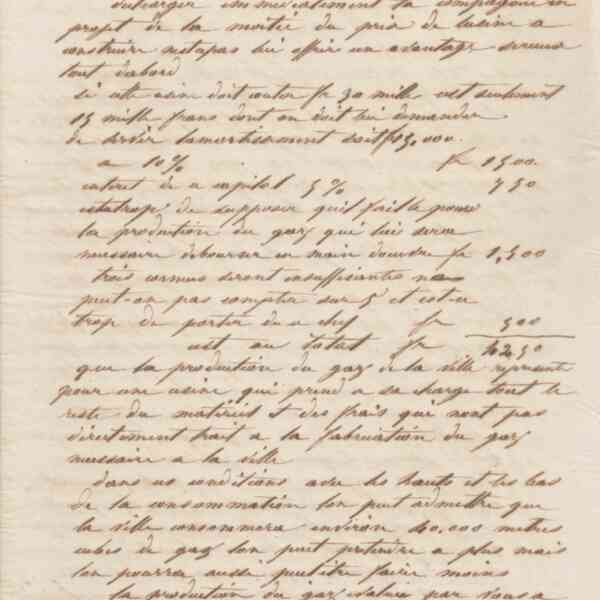 decharger immediatement la compagnie en
projet de la moitié du prix de lusine a
construire nestapas lui offrir un avantage serieux
tout dabord
si cette usine doit couter fr 30 mille cest seulement
15 mille francs dont on doit lui demander
de servir lamortissement soit fr 15,000.
a 10 % fr 1500.
interet de ce capital 5 % 750
estcetrop de supposer quil faille pour
la production du gaz qui lui sera
necessaire debourser en main doeuvre fr 1,500
trois cornues seront insuffisantes ne
peut-on pas compter sur 5 et est-ce
trop de porter de ce chef fr 500
est au total fr 4250
que la production du gaz de la ville represente
pour une usine qui prend a sa charge tout le
reste du matériel et des frais qui nont pas
directement trait a la fabrication du gaz
necessaire a la ville
dans ces conditions avec les hauts et les bas
de la consommation lon peut admettre que
la ville consommera environ 40.000 metres
cubes de gaz lon peut pretendre a plus mais
lon pourra aussi peutêtre faire moins
la production du gaz evaluée par vous a